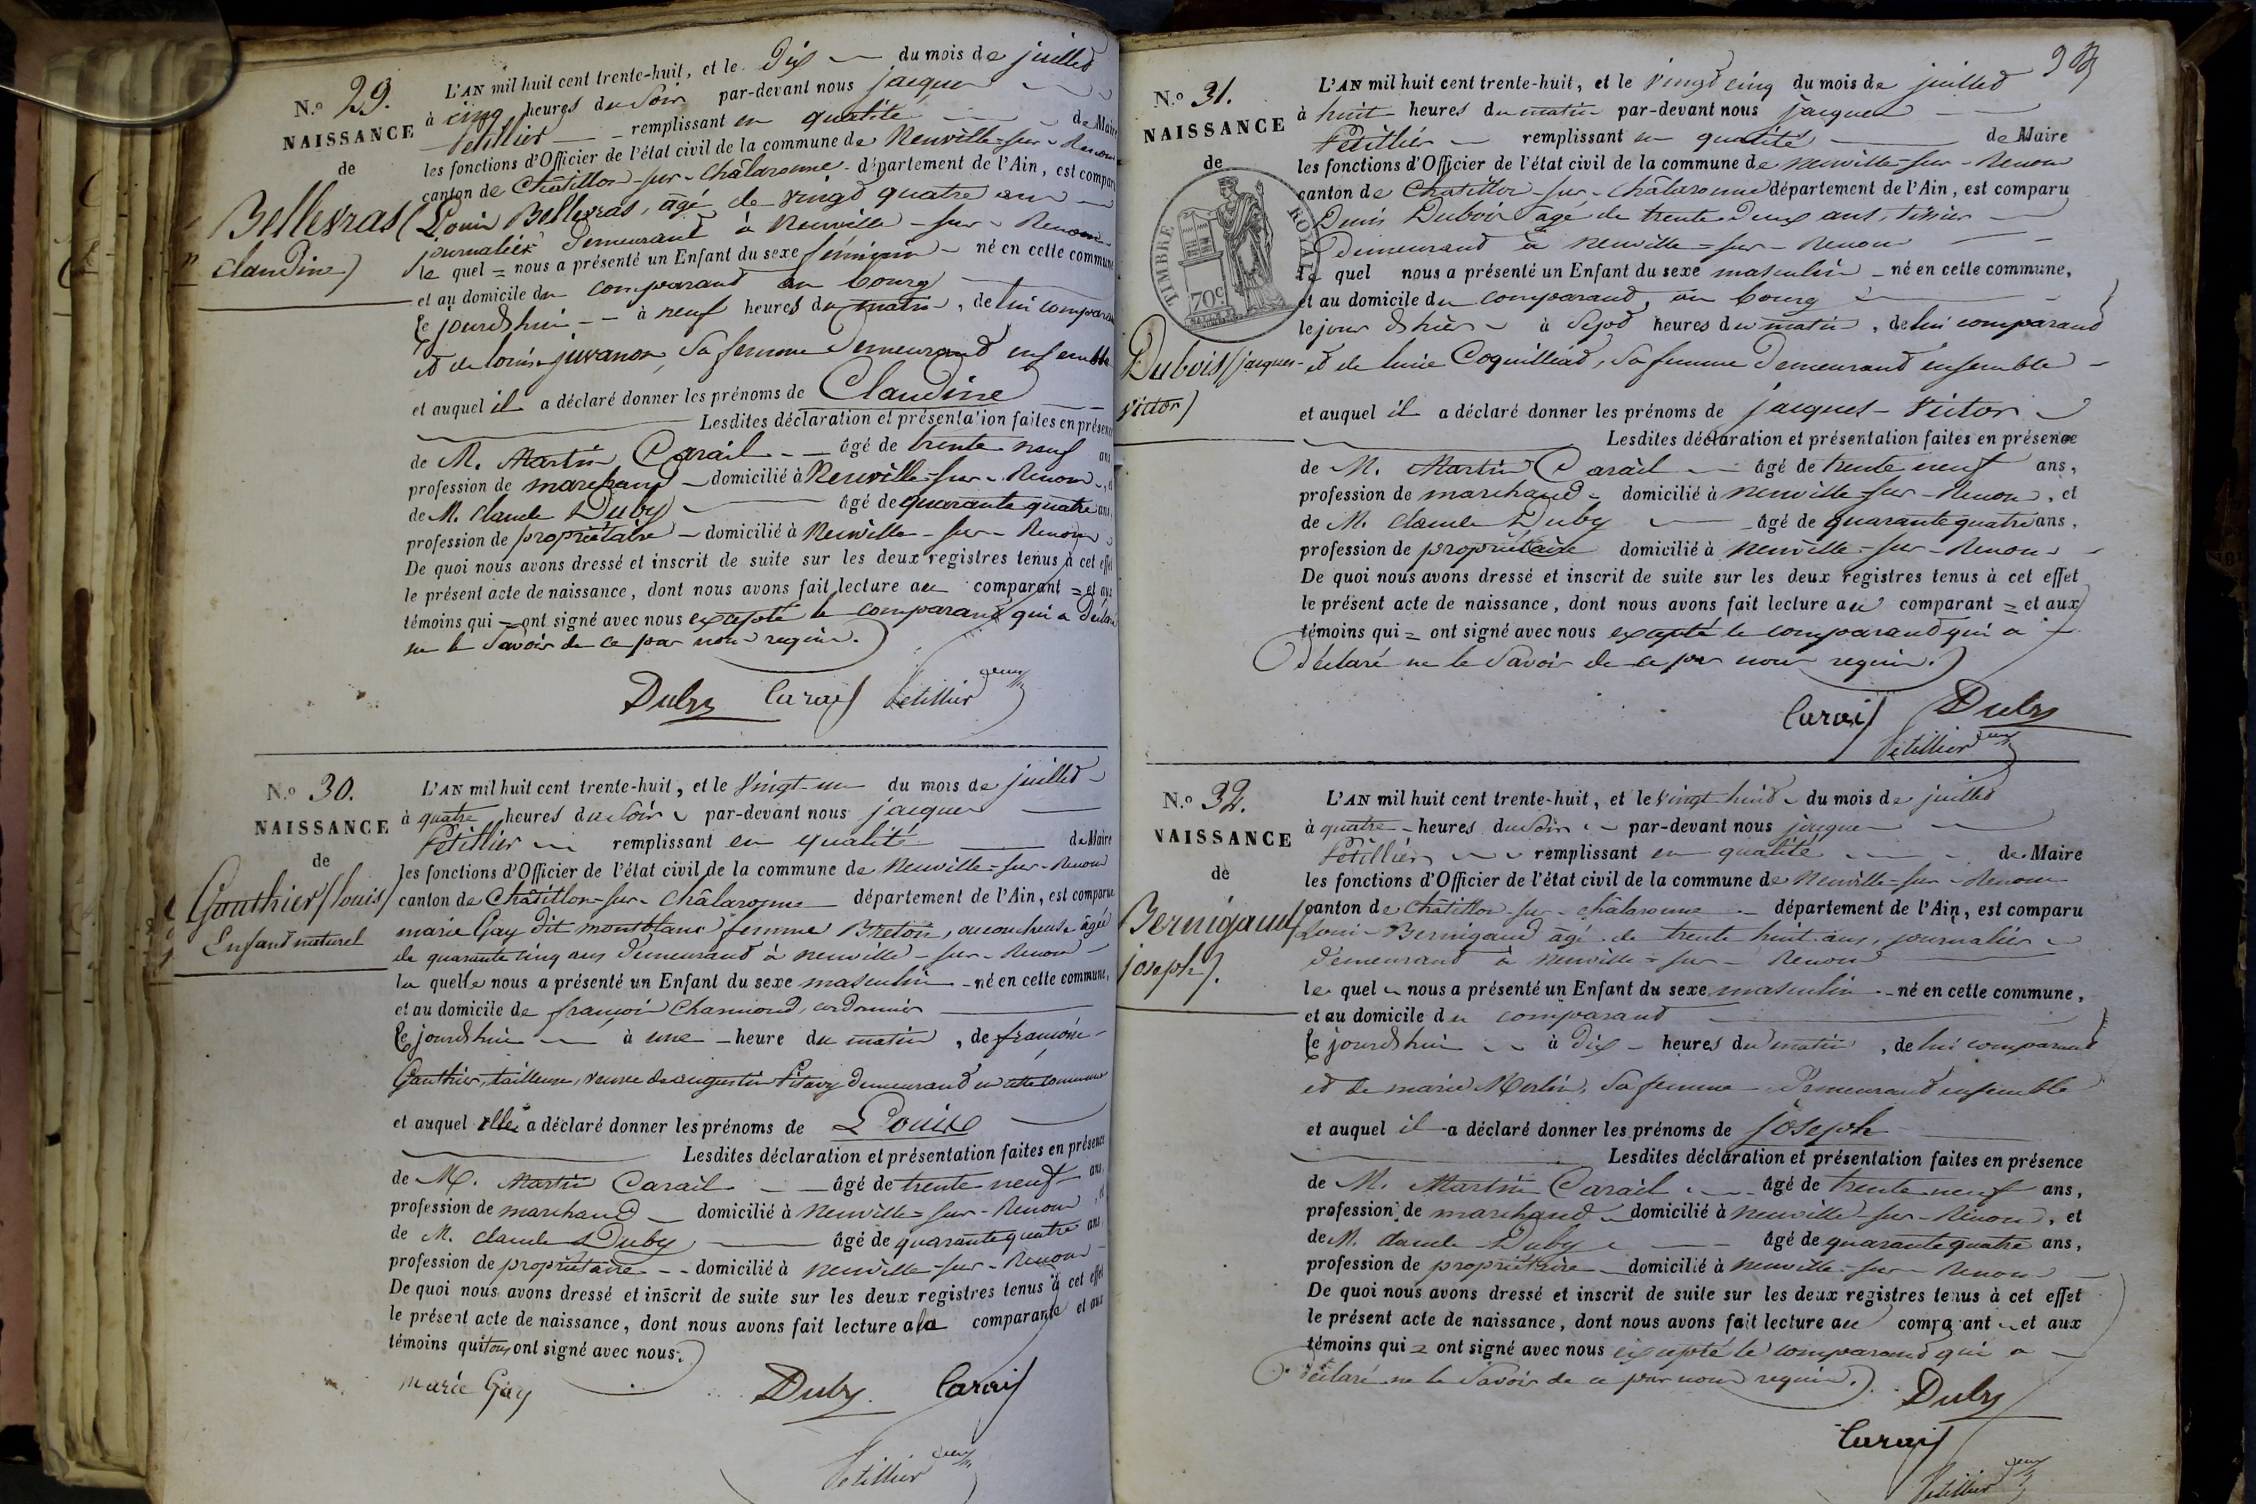 N.º 29.
NAISSANCE
de
Bellevras (
Claudine)
L'AN mil huit cent trente-huit, et le Dix du mois de juillet
à cinq heures du Soir par-devant nous jacques
Petillier remplissant en qualité de Maire
les fonctions d'Officier de l'état civil de la commune de Neuville-sur-Renon
canton de Châtillon-sur-Châlaronne département de l'Ain, est comparu
Louis Bellevras, âgé de vingt quatre ans
journalier demeurant à Neuville-sur-Renon
le quel = nous a présenté un Enfant du sexe féminin né en cette commune
et au domicile du comparant au bourg
Ce jourd'hui à neuf heures du matin, de lui comparant
et de louise juvanon, Sa femme Demeurant ensemble
et auquel il a déclaré donner les prénoms de Claudine
Lesdites déclaration et présentation faites en présence
de M. Martin Carail âgé de trente neuf ans
profession de marchand domicilié à Neuville-sur-Renon, et
de M. Claude Duby âgé de quarante quatre ans,
profession de propriétaire domicilié à Neuville-sur-Renon
De quoi nous avons dressé et inscrit de suite sur les deux registres tenus à cet effet
le présent acte de naissance, dont nous avons fait lecture au comparant = et aux
témoins qui = ont signé avec nous excepté le comparant qui a déclaré
ne le Savoir de ce par nous requis.
Duby Carail Petillier
N.º 30.
NAISSANCE
de
Gauthier (louis)
Enfant naturel
L'AN mil huit cent trente-huit, et le Vingt-un du mois de juillet
à quatre heures du Soir par-devant nous jacques
Petillier remplissant en qualité de Maire
les fonctions d'Officier de l'état civil de la commune de Neuville-sur-Renon
canton de Châtillon-sur-Châlaronne département de l'Ain, est comparue
marie Gay dit montblanc femme Breton, accoucheuse âgée
de quarante cinq ans Demeurant à neuville-sur-Renon
la quelle nous a présenté un Enfant du sexe masculin né en cette commune,
et au domicile de françois Charmond, cordonnier
Ce jourd'hui à une heure du matin, de françoise
Gauthier, tailleuse, veuve de augustin Pitavy demeurant en cette commune
et auquel elle a déclaré donner les prénoms de Louis
Lesdites déclaration et présentation faites en présence
de M. Martin Carail âgé de trente neuf ans,
profession de marchand domicilié à Neuville-sur-Renon, et
de M. claude Duby âgé de quarante quatre ans,
profession de propriétaire domicilié à Neuville-sur-Renon
De quoi nous avons dressé et inscrit de suite sur les deux registres tenus à cet effet
le présent acte de naissance, dont nous avons fait lecture a la comparante et aux
témoins qui tous ont signé avec nous.
marie Gay Duby Carail
Petillier
N.º 31.
NAISSANCE
de
TIMBRE ROYAL
70c
Dubois (jacques-
Victor)
L'AN mil huit cent trente-huit, et le Vingt cinq du mois de juillet
à huit heures du matin par-devant nous jacques
Petillier remplissant en qualité de Maire
les fonctions d'Officier de l'état civil de la commune de neuville-sur-Renon
canton de Chatillon-sur-Châlaronne département de l'Ain, est comparu
Denis Dubois âgé de trente Deux ans, tissier
Demeurant à Neuville=sur-Renon
le quel nous a présenté un Enfant du sexe masculin né en cette commune,
et au domicile du comparant, au bourg
le jour d'hier à Sept heures du matin, de lui comparant
et de lucie Coquilliad, Sa femme Demeurant ensemble
et auquel il a déclaré donner les prénoms de jacques-Victor
Lesdites déclaration et présentation faites en présence
de M. Martin Carail âgé de trente neuf ans,
profession de marchand domicilié à neuville-sur-Renon, et
de M. claude Duby âgé de quarante quatre ans,
profession de propriétaire domicilié à neuville-sur-Renon
De quoi nous avons dressé et inscrit de suite sur les deux registres tenus à cet effet
le présent acte de naissance, dont nous avons fait lecture au comparant = et aux
témoins qui = ont signé avec nous excepté le comparant qui a
déclaré ne le Savoir de ce par nous requis.
Carail Duby
Petillier
N.º 32.
NAISSANCE
de
Bernigaud (
joseph).
L'AN mil huit cent trente-huit, et le vingt huit du mois de juillet
à quatre heures du Soir par-devant nous jacques
Petillier remplissant en qualité de Maire
les fonctions d'Officier de l'état civil de la commune de Neuville-sur-Renon
canton de Châtillon-sur-châlaronne département de l'Ain, est comparu
Louis Bernigaud âgé de trente huit ans, journalier
demeurant à neuville=sur-Renon
le quel nous a présenté un Enfant du sexe masculin né en cette commune,
et au domicile du comparant
Ce jourd'hui à Dix heures du matin, de lui comparant
et de marie Merlin, Sa femme Demeurant ensemble
et auquel il a déclaré donner les prénoms de joseph
Lesdites déclaration et présentation faites en présence
de M. Martin Carail âgé de trente neuf ans,
profession de marchand domicilié à neuville-sur-Renon, et
de M. claude Duby âgé de quarante quatre ans,
profession de propriétaire domicilié à neuville-sur-Renon
De quoi nous avons dressé et inscrit de suite sur les deux registres tenus à cet effet
le présent acte de naissance, dont nous avons fait lecture au comparant et aux
témoins qui = ont signé avec nous excepté le comparant qui a
déclaré ne le Savoir de ce par nous requis.
Duby
Carail
Petillier